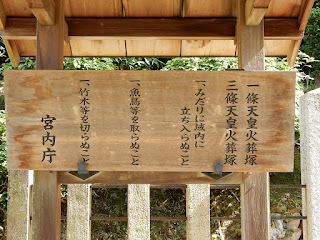 一條天皇火葬塚
三條天皇火葬塚
一、みだりに域内に
立ち入らぬこと
一、魚鳥等を取らぬこと
一、竹木等を切らぬこと
宮内庁